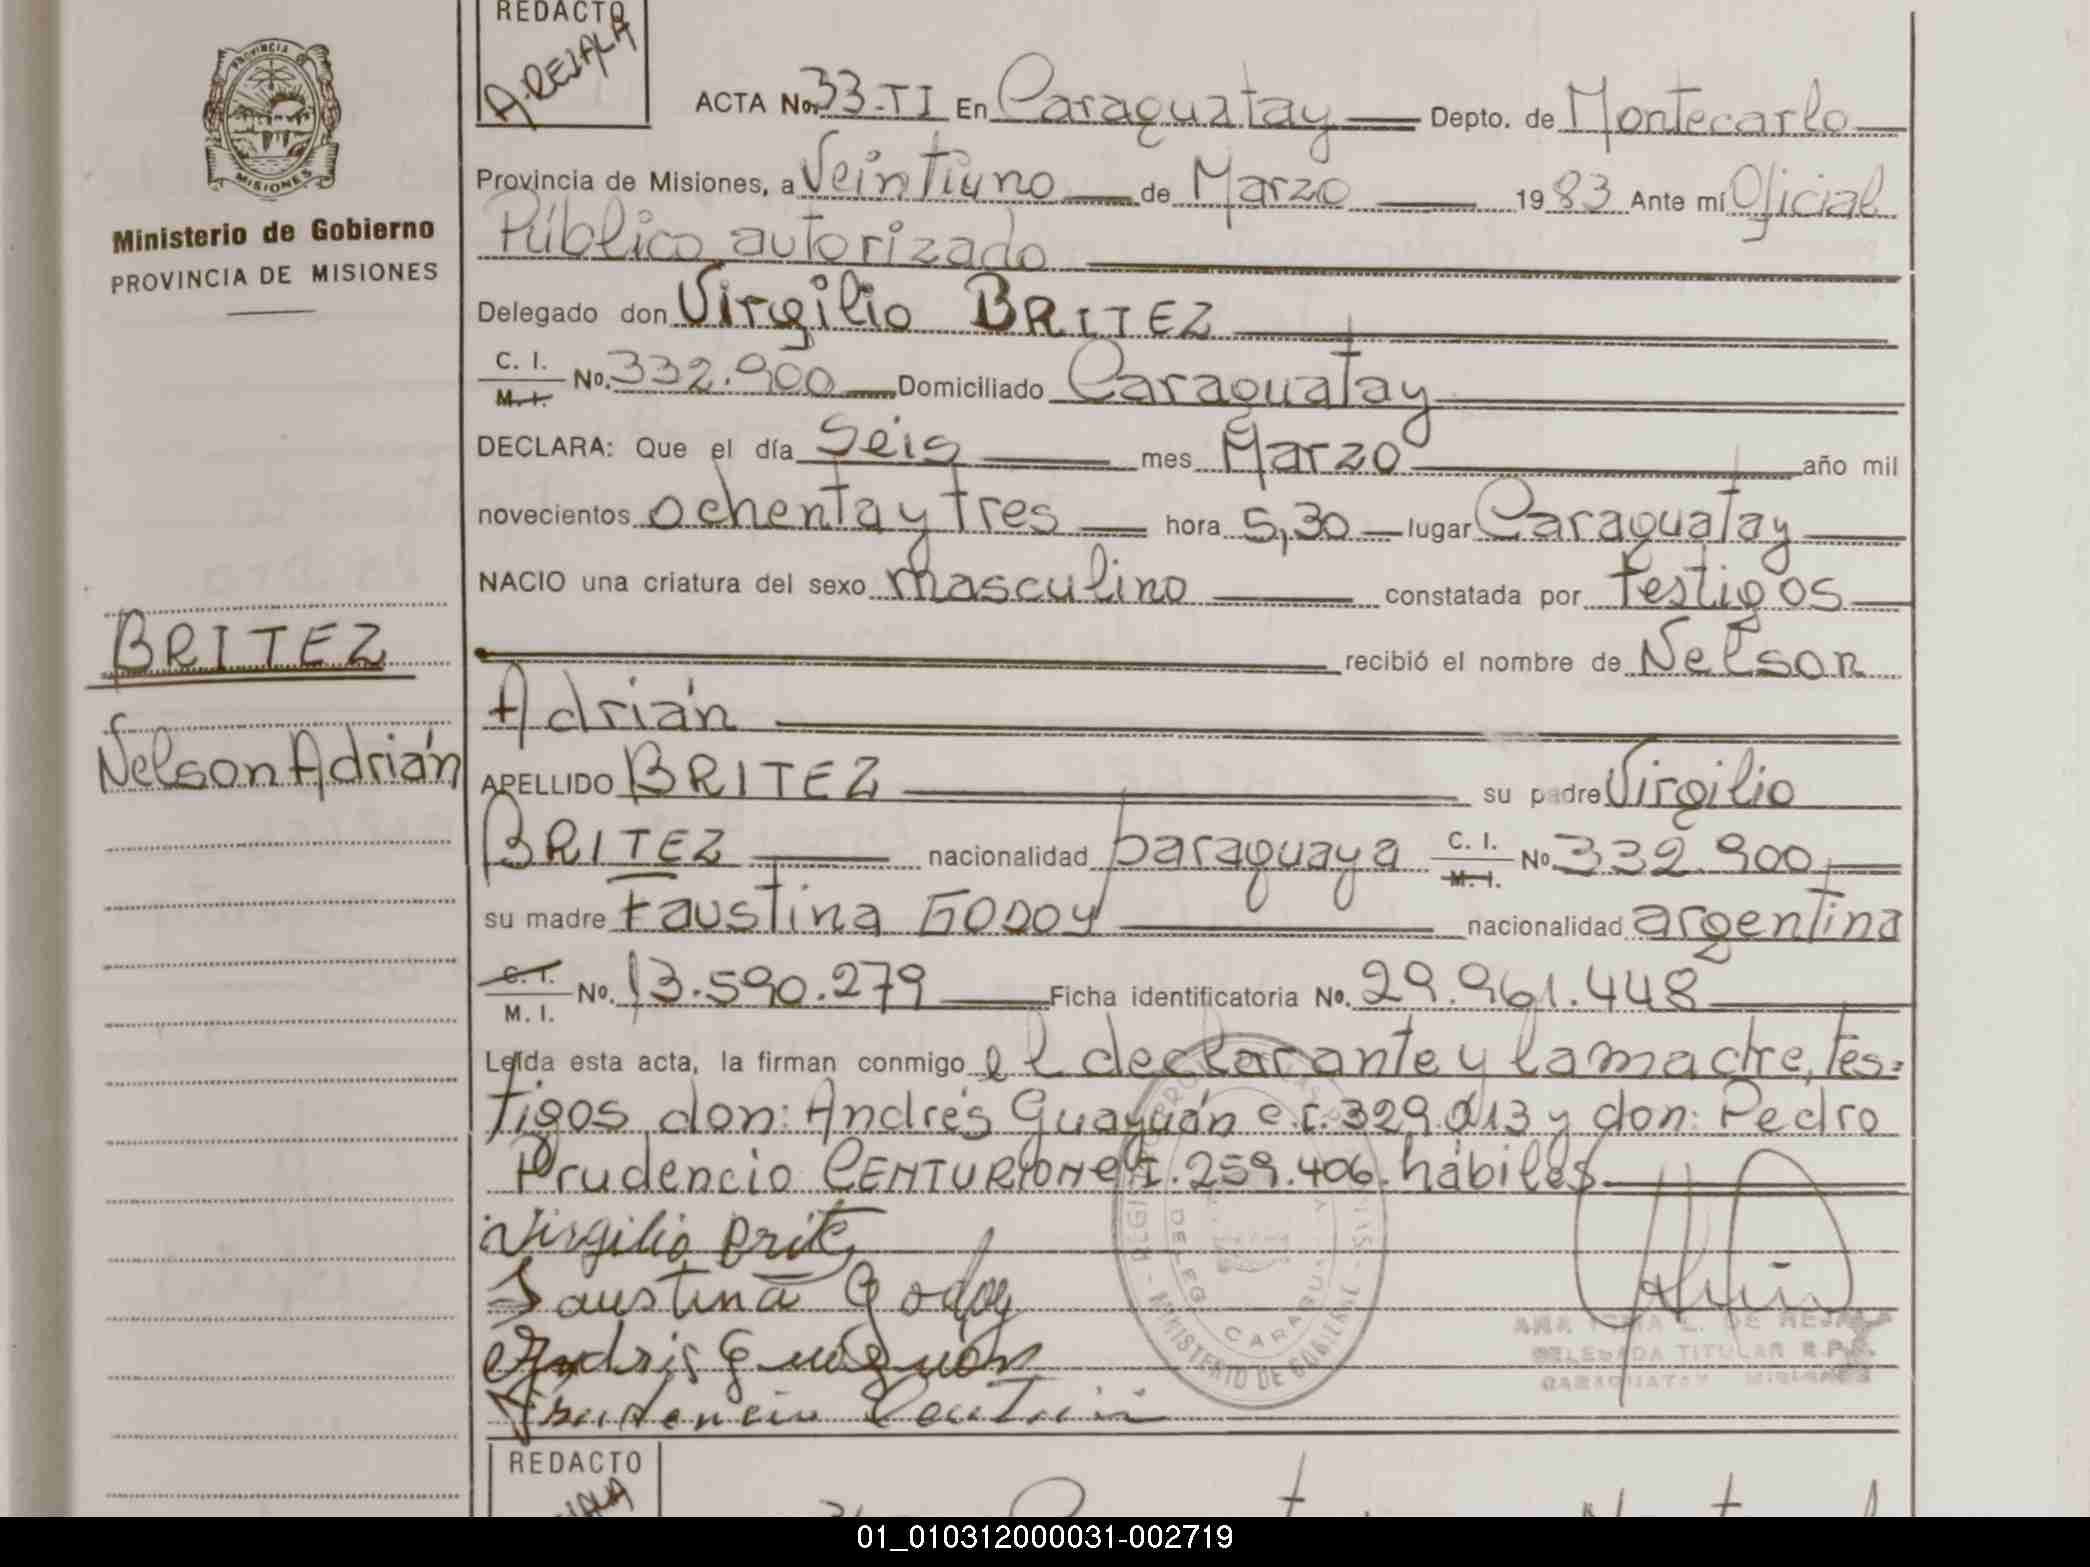 REDACTO
A. REJALA
PROVINCIA
MISIONES
Ministerio de Gobierno
PROVINCIA DE MISIONES
BRITEZ
Nelson Adrián
ACTA No. 33-TI En Caraguatay Depto. de Montecarlo
Provincia de Misiones, a Veintiuno de Marzo 1983 Ante mí Oficial
Público autorizado
Delegado don Virgilio BRITEZ
C. I. M. I. No. 332.900 Domiciliado Caraguatay
DECLARA: Que el día Seis mes Marzo año mil
novecientos ochenta y tres hora 5,30 lugar Caraguatay
NACIO una criatura del sexo masculino constatada por testigos
recibió el nombre de Nelson
Adrián
APELLIDO BRITEZ su padre Virgilio
BRITEZ nacionalidad paraguaya C. I. M. I. No. 332.900
su madre Faustina GODOY nacionalidad argentina
C. I. M. I. No. 13.590.279 Ficha identificatoria No. 29.961.448
Leída esta acta, la firman conmigo el declarante y la madre, tes=
tigos don: Andrés Guayuán c.i. 329.013 y don: Pedro
Prudencio CENTURION c.I. 259.406. hábiles
Virgilio Britez
Faustina Godoy
Prudencio
MINISTERIO DE GOBIERNO
ANA IRMA L. DE REJALA
DELEGADA TITULAR R.P.
CARAGUATAY MISIONES
REDACTO
01_010312000031-002719